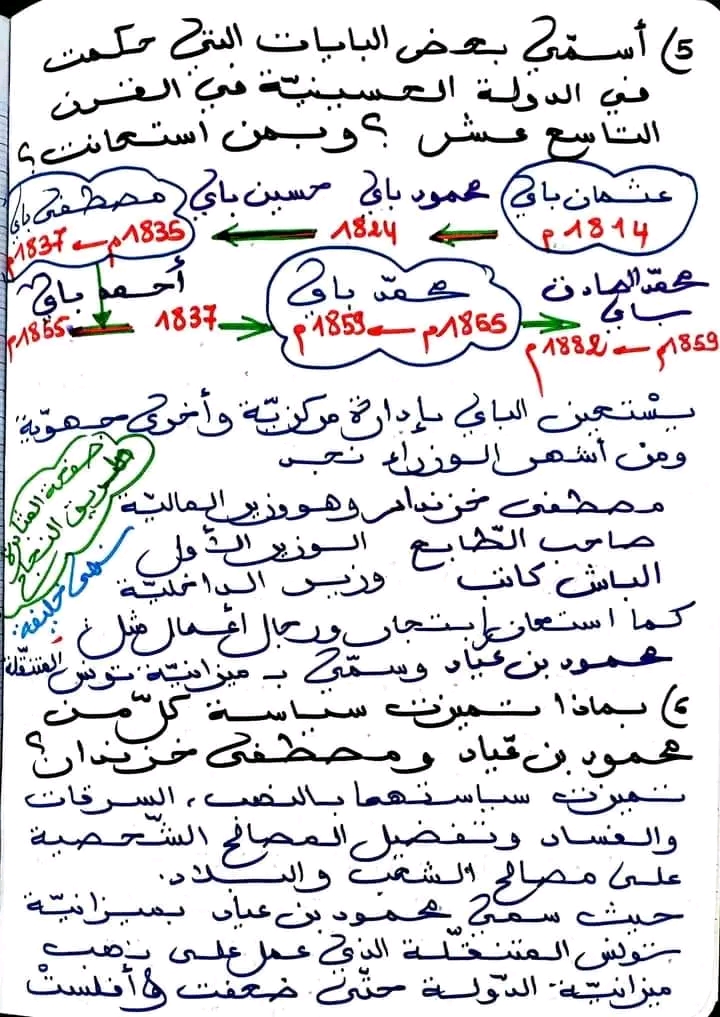 5) أسمّي بعض البايات التي حكمت
في الدولة الحسينيّة في القرن
التاسع عشر ؟ وبمن استعانت ؟
عثمان باي محمود باي حسين باي مصطفى باي
1814 م 1824 1835 م 1837 م
محمّد الصادق باي محمّد باي أحمد باي
1837 1855 م
1855 م 1859 م
1859 م 1882 م
يستعين الباي بإدارة مركزيّة وأخرى جهويّة
ومن أشهر الوزراء نجد
مصطفى خزندار وهو وزير الماليّة
صاحب الطّابع الوزير الأول
الباش كاتب وزير الداخليّة
كما استعان بتجار ورجال أعمال مثل
محمود بن عياد وسمّي بـ ميزانيّة تونس المتنقّلة
صفحة المنارة
طريق النجاح
سهى خليفة
6) بماذا تميزت سياسة كلّ من
محمود بن عيّاد ومصطفى خزندار ؟
تميزت سياستهما بالنهب، السرقات
والفساد وتفضيل المصالح الشّخصية
على مصالح الشعب والبلاد.
حيث سمّي محمود بن عياد بميزانيّة
تونس المتنقّلة الذي عمل على نهب
ميزانيّة الدّولة حتّى ضعفت وأفلستْ